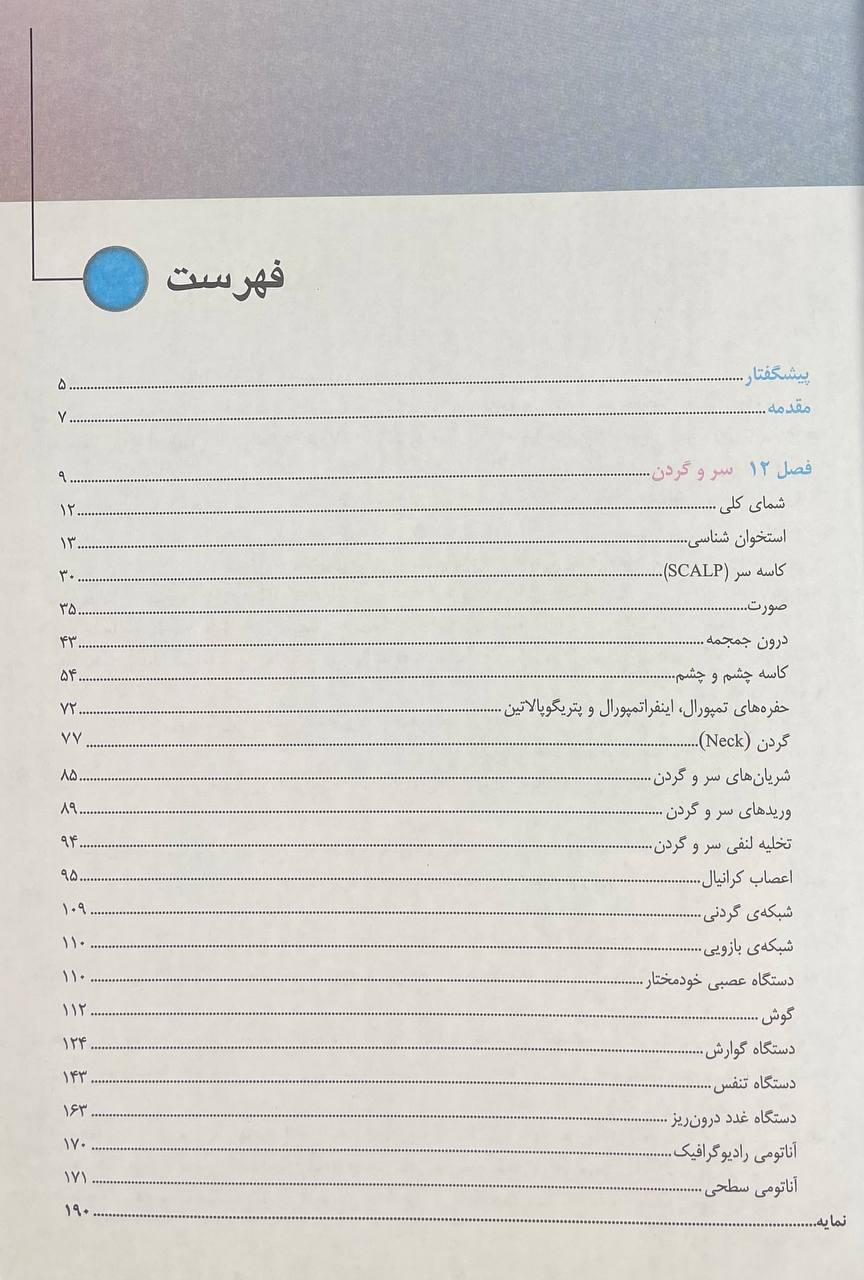 فهرست
پیشگفتار ..... ۵
مقدمه ..... ۷
فصل ۱۲ سر و گردن ..... ۹
شمای کلی ..... ۱۲
استخوان شناسی ..... ۱۳
کاسه سر (SCALP) ..... ۳۰
صورت ..... ۳۵
درون جمجمه ..... ۴۳
کاسه چشم و چشم ..... ۵۴
حفره‌های تمپورال، اینفراتمپورال و پتریگوپالاتین ..... ۷۲
گردن (Neck) ..... ۷۷
شریان‌های سر و گردن ..... ۸۵
وریدهای سر و گردن ..... ۸۹
تخلیه لنفی سر و گردن ..... ۹۴
اعصاب کرانیال ..... ۹۵
شبکه‌ی گردنی ..... ۱۰۹
شبکه‌ی بازویی ..... ۱۱۰
دستگاه عصبی خودمختار ..... ۱۱۰
گوش ..... ۱۱۲
دستگاه گوارش ..... ۱۲۴
دستگاه تنفس ..... ۱۴۳
دستگاه غدد درون‌ریز ..... ۱۶۳
آناتومی رادیوگرافیک ..... ۱۷۰
آناتومی سطحی ..... ۱۷۱
نمایه ..... ۱۹۰